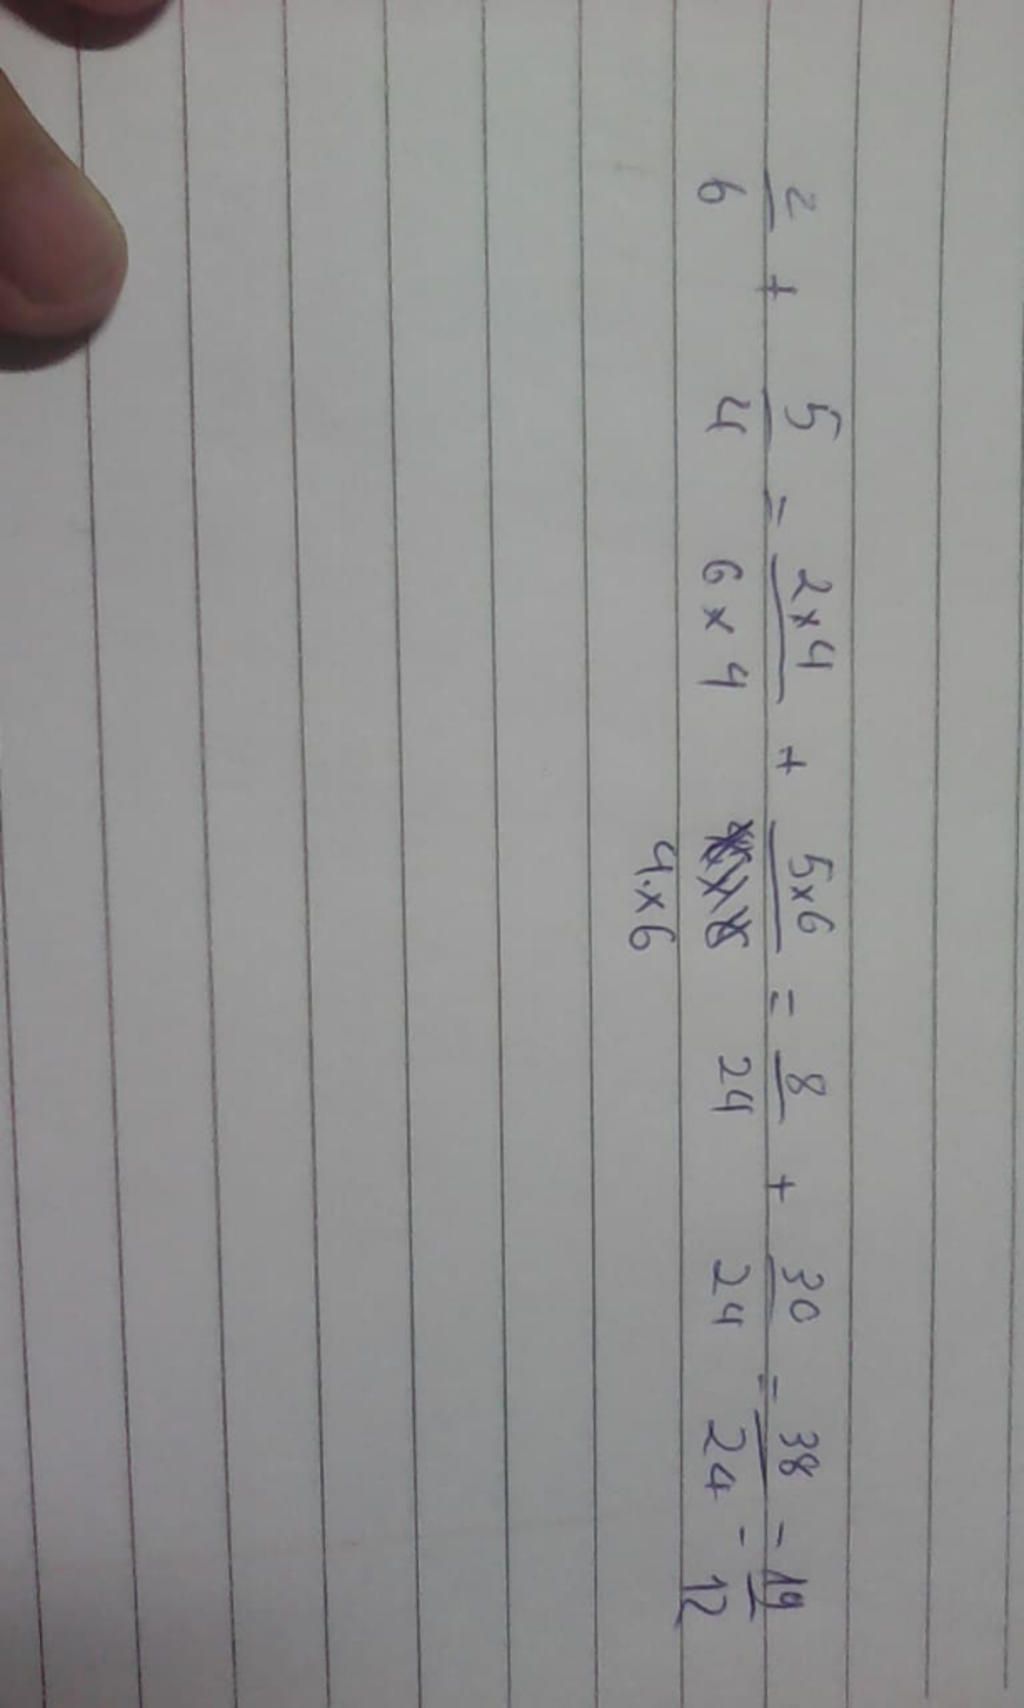 2/6 + 5/4 = 2x4/6x4 + 5x6/4x6 = 8/24 + 30/24 = 38/24 = 19/12